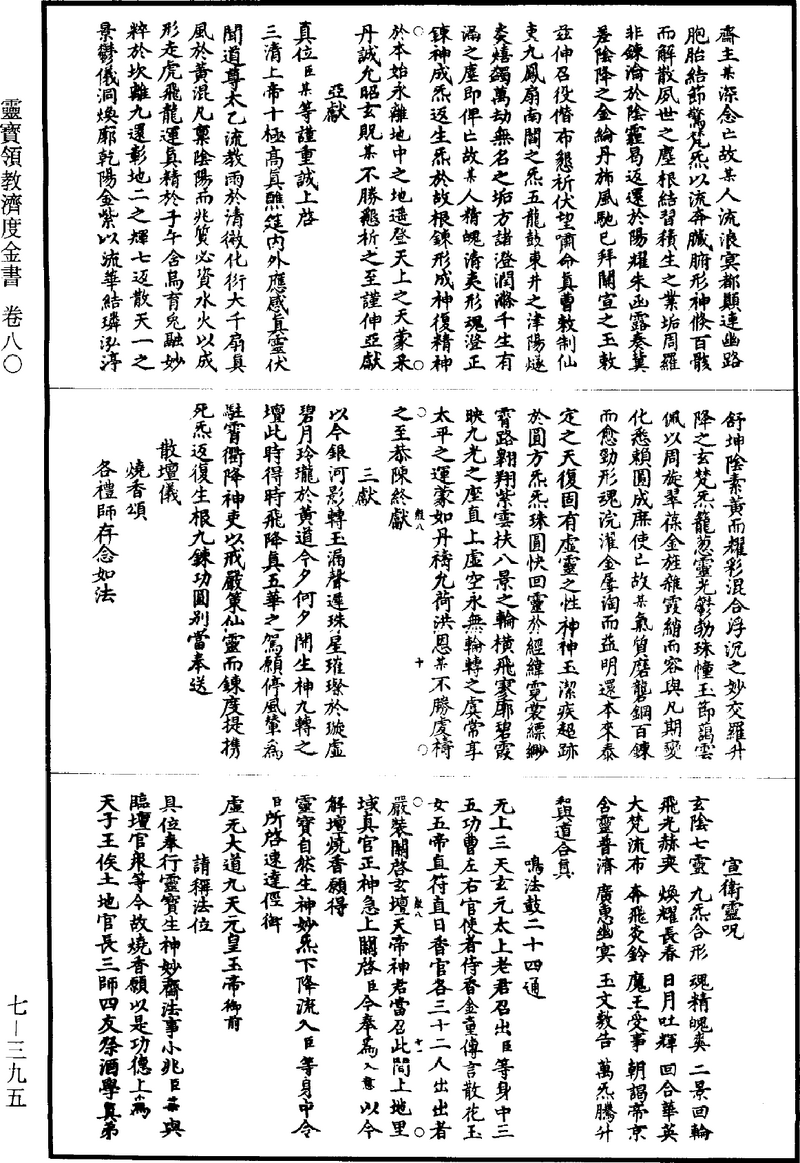 齋主某深念亡故某人流浪冥都顛連幽路
胞胎結節驚梵炁以流奔臟腑形神倏百骸
而解散夙世之塵根結習積生之業垢周羅
非鍊淪於陰靈曷返還於陽耀朱函露奏冀
差陰降之金綸丹旆風馳已拜關宣之玉敕
玆伸召役偕布懇祈伏望嘯命真曹敕制仙
吏九鳳扇南閶之炁五龍鼓東井之津陽燧
炎熺蠲萬劫無名之垢方諸澄潤滌千生有
漏之塵即俾亡故某人精魄清夷形魂澄正
鍊神成炁返生炁於故根鍊形成神復精神
於本始永離地中之地遥登天上之天蒙釆
丹誠允昭玄貺某不勝懇祈之至謹伸亞獻
亞獻
真位臣某等謹重誠上啓
三清上帝十極高真醮筵内外應感真靈伏
聞道尊太乙流教雨於清微化衍大千扇真
風於黃混凡稟陰陽而兆質必資水火以成
形走虎飛龍運真精於子午舍烏育兔融妙
粹於坎離九還彰地二之輝七返散天一之
景鬱儀洞煥廓乾陽金紫以流華結璘泓渟
靈寶領教濟度金書 卷八〇
舒坤陰素黃而耀彩混合浮沉之妙交羅升
降之玄梵炁籠葱靈光鬱勃珠幢玉節藹雲
佩以周旋翠葆金旌雜霞綃而容與凡期變
化悉賴圓成庶使亡故某氣質磨礱鋼百鍊
而愈勁形魂浣濯金屢淘而益明還本來泰
定之天復固有虛靈之性神神玉潔疾超跡
於圓方炁炁珠圓快回靈於經緯霓裳縹緲
霄路翺翔紫雲扶八景之輪橫飛寥廓碧霞
映九光之座直上虛空永無輪轉之虞常享
太平之運蒙如丹禱允荷洪恩某不勝虔禱
之至恭陳終獻
三獻
以今銀河影轉玉漏聲遲珠星璀璨於璇虛
碧月玲瓏於黃道今夕何夕開生神九轉之
壇此時得時飛降真五華之駕願停風輦爲
駐霄衢降神吏以戒嚴策仙靈而鍊度提携
死炁返復生根九鍊功圓别當奉送
散壇儀
燒香頌
各禮師存念如法
宣衛靈呪
玄陰七靈 九炁合形 魂精魄英 二景回輪
飛光赫奕 煥耀長春 日月吐輝 回合華英
大梵流布 奔飛炎鈴 魔王受事 朝謁帝京
含靈普濟 廣惠幽冥 玉文敷告 萬炁騰升
與道合真
鳴法鼓二十四通
无上三天玄元太上老君召出臣等身中三
五功曹左右官使者侍香金童傳言散花玉
女五帝直符直日香官各三十二人出出者
嚴裝關啓玄壇天帝神君當召此間土地里
域真官正神急上關啓臣今奉爲入意以今
解壇燒香願得
靈寶自然生神妙炁下降流入臣等身中令
臣所啓速達徑御
虛无大道九天元皇玉帝御前
請稱法位
具位奉行靈寶生神妙齋法事小兆臣某與
臨壇官衆等今故燒香願以是功德上爲
天子王侯土地官長三師四友祭酒學真弟
七－三九五